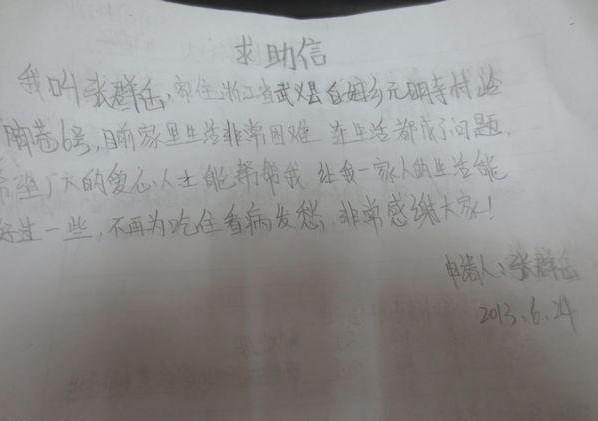 求助信
我叫张群岳,家住浙江省武义县白姆乡元明寺村岭
南巷6号,目前家里生活非常困难 连生活都成了问题,
希望广大的爱心人士能帮帮我 让我一家人的生活能
好过一些,不再为吃住看病发愁,非常感谢大家!
申请人:张群岳
2013.6.24